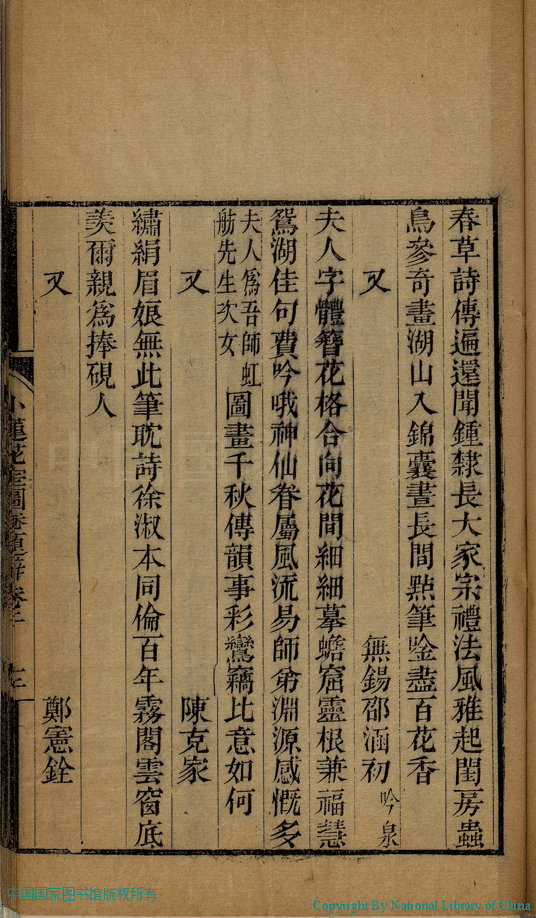 春草詩傳遍還聞鍾隸長大家宗禮法風雅起閨房蟲
鳥參奇畫湖山入錦囊晝長間點筆唫盡百花香
又 無錫邵涵初 吟泉
夫人字體簪花格合向花間細細摹蟾窟靈根兼福慧
鴛湖佳句費吟哦神仙眷屬風流易師弟淵源感慨多
夫人為吾師虹
舫先生次女
圖畫千秋傳韻事彩鸞竊比意如何
又 陳克家
繡絹眉娘無此筆耽詩徐淑本同倫百年霧閣雲窗底
羨爾親為捧硯人
又 鄭憲銓
小蓮花室圖卷題辭卷二
中国国家图书馆版权所有
Copyright By National Library of China